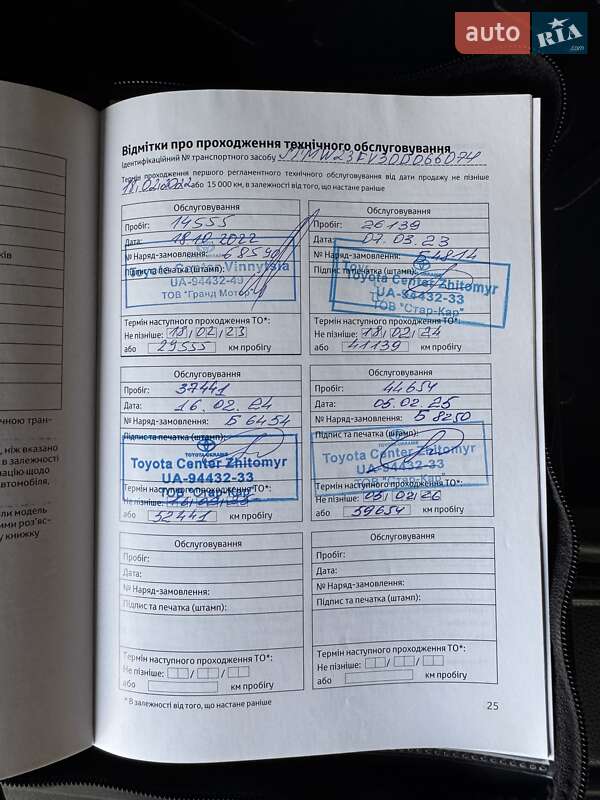 auto RIA .com
Відмітки про проходження технічного обслуговування
Ідентифікаційний № транспортного засобу JTMW23FV30D066074
Термін проходження першого регламентного технічного обслуговування від дати продажу не пізніше
18.02.2022 або 15 000 км, в залежності від того, що настане раніше
Обслуговування
Пробіг: 14555
Дата: 18.10.2022
№ Наряд-замовлення: 68590
Підпис та печатка (штамп):
Toyota Center Vinnytsia
UA-94432-49
ТОВ "Гранд Мотор"
Термін наступного проходження ТО*:
Не пізніше: 18/02/23
або 29555 км пробігу
Обслуговування
Пробіг: 26139
Дата: 07.03.23
№ Наряд-замовлення: Б4814
Підпис та печатка (штамп):
Toyota Center Zhitomyr
UA-94432-33
ТОВ "Стар-Кар"
Термін наступного проходження ТО*:
Не пізніше: 18/02/24
або 41139 км пробігу
Обслуговування
Пробіг: 37441
Дата: 16.02.24
№ Наряд-замовлення: Б6454
Підпис та печатка (штамп):
TOYOTA-UKRAINE
Toyota Center Zhitomyr
UA-94432-33
ТОВ "Стар-Кар"
Термін наступного проходження ТО*:
Не пізніше:
або 52441 км пробігу
Обслуговування
Пробіг: 44654
Дата: 05.02.25
№ Наряд-замовлення: Б8250
Підпис та печатка (штамп):
TOYOTA-UKRAINE
Toyota Center Zhitomyr
UA-94432-33
ТОВ "Стар-Кар"
Термін наступного проходження ТО*:
Не пізніше: 05/02/26
або 59654 км пробігу
Обслуговування
Пробіг:
Дата:
№ Наряд-замовлення:
Підпис та печатка (штамп):
Термін наступного проходження ТО*:
Не пізніше: / /
або км пробігу
Обслуговування
Пробіг:
Дата:
№ Наряд-замовлення:
Підпис та печатка (штамп):
Термін наступного проходження ТО*:
Не пізніше: / /
або км пробігу
* В залежності від того, що настане раніше
25
ків
ичною гран-
, ніж вказано
в залежності
мацію щодо
автомобіля,
или модель
ими роз'яс-
у книжку